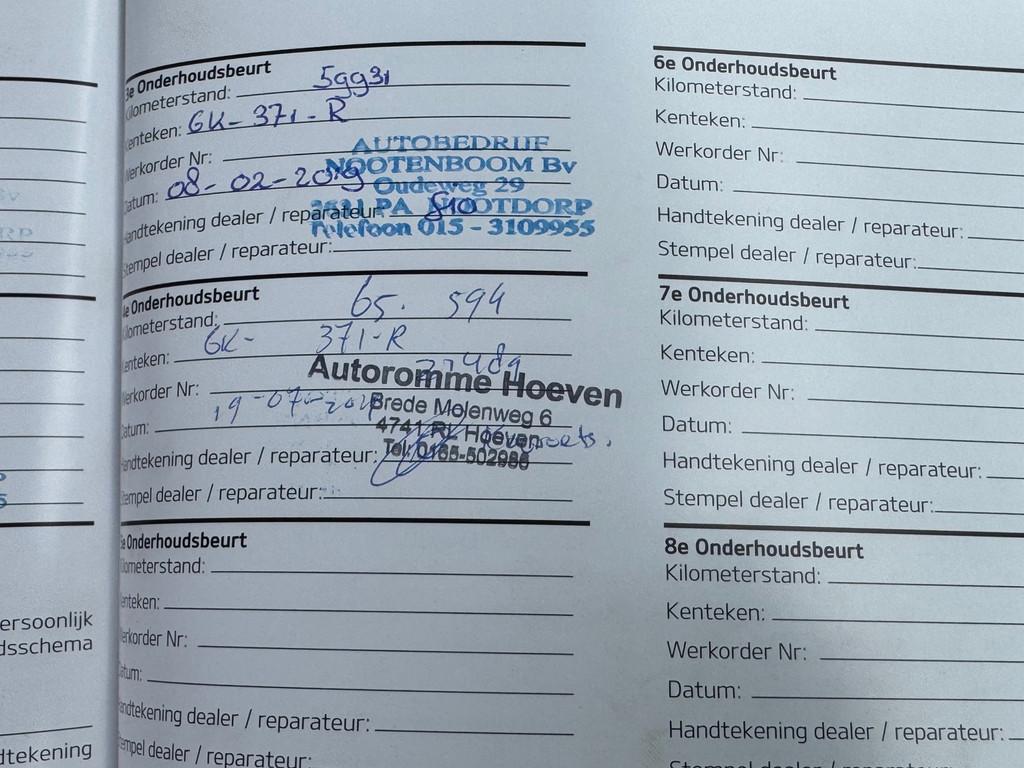 3e Onderhoudsbeurt
Kilometerstand: 59931
Kenteken: GK-371-R
Werkorder Nr:
Datum: 08-02-2019
Handtekening dealer / reparateur:
Stempel dealer / reparateur:
AUTOBEDRIJF
NOOTENBOOM BV
Oudeweg 29
PA NOOTDORP
Telefoon 015 - 3109955
4e Onderhoudsbeurt
Kilometerstand: 65.594
Kenteken: GK-371-R
Werkorder Nr:
Datum: 19-07-
Handtekening dealer / reparateur:
Stempel dealer / reparateur:
Autoromme Hoeven
Brede Molenweg 6
4741 RL Hoeven
Tel: 0165-502986
5e Onderhoudsbeurt
Kilometerstand:
Kenteken:
Werkorder Nr:
Datum:
Handtekening dealer / reparateur:
Stempel dealer / reparateur:
6e Onderhoudsbeurt
Kilometerstand:
Kenteken:
Werkorder Nr:
Datum:
Handtekening dealer / reparateur:
Stempel dealer / reparateur:
7e Onderhoudsbeurt
Kilometerstand:
Kenteken:
Werkorder Nr:
Datum:
Handtekening dealer / reparateur:
Stempel dealer / reparateur:
8e Onderhoudsbeurt
Kilometerstand:
Kenteken:
Werkorder Nr:
Datum:
Handtekening dealer / reparateur:
Stempel dealer / reparateur:
ersoonlijk
dsschema
dtekening